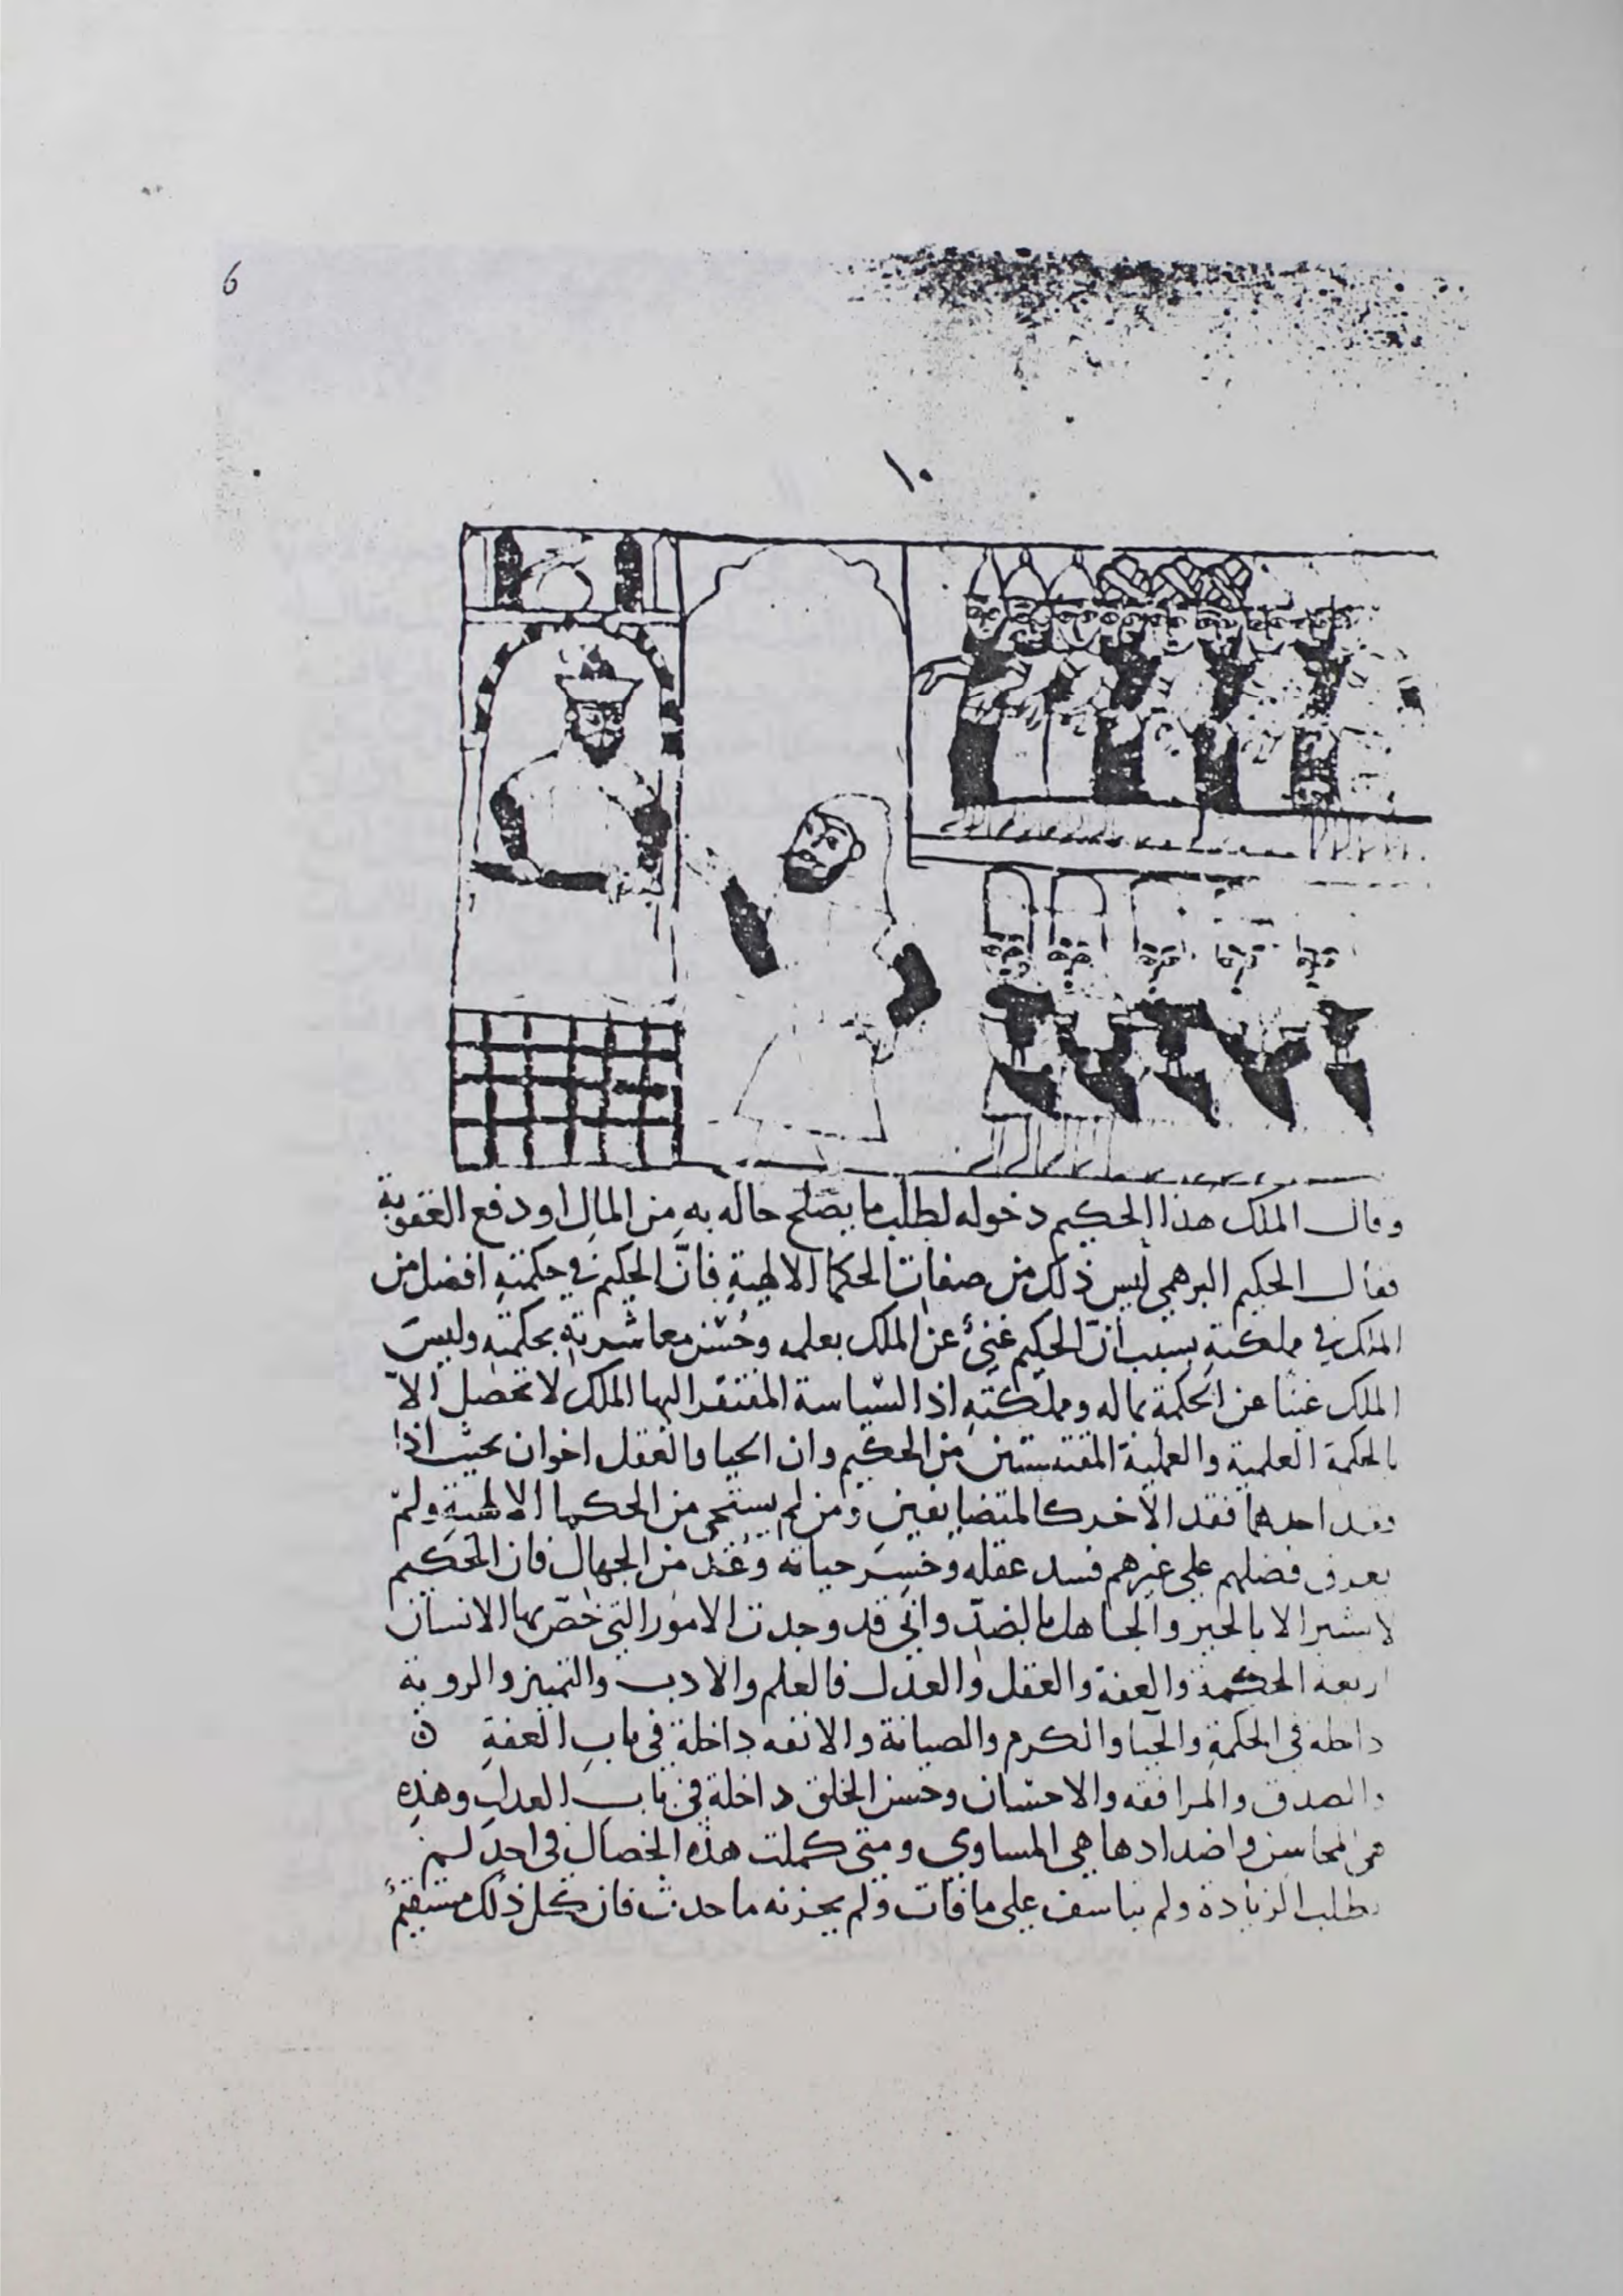 6
١٠
وقال الملك هذا الحكيم دخوله لطلب ما يصلح حاله به من المال او دفع العقوبة
فقال الحكيم البرهمي ليس ذلك من صفات الحكما الالهية فانَّ الحكيم في حكمتهِ افضل من
الملك في مملكتهِ بسبب أنّ الحكيم غنيٌ عن الملك بعلمه وحُسْن معاشرتهِ بحكمتهِ وليسَ
الملك غنيًا عن الحكمة بماله ومملكتهِ اذ السّياسة المفتقر اليها الملك لا تحصل الاّ
بالحكمة العلمية والعملية المقتبستين من الحكيم وان الحيا والعقل اخوان بحيث اذا
فقد احدهما فقد الاخر كالمتضايفين ومن لم يستحى من الحكما الالهيةِ ولمْ
يعرف فضلهم على غيرهم فسد عقله وخسِرَ حياته وعُدّ من الجهال فان الحكيم
لا يشير الا بالخير والجاهل بالضدِّ واني قد وجدت الامور التي خصّ بها الانسان
اربعة الحكمة والعفة والعقل والعدل فالعلم والادب والتميز والروية
داخلة في الحكمةِ والحيا والكرم والصيانة والانفه داخلة في بابِ العفةِ ن
والصدق والمرافقه والاحسان وحسن الخلق داخلة في باب العدل وهذهِ
هي المحاسن واضدادها هي المساوي ومتى كملت هذه الخصال في احدٍ لم
يطلب الزيادة ولم يتاسف على ما فات ولم يحزنه ما حدث فان كل ذلك مستقيمٌ